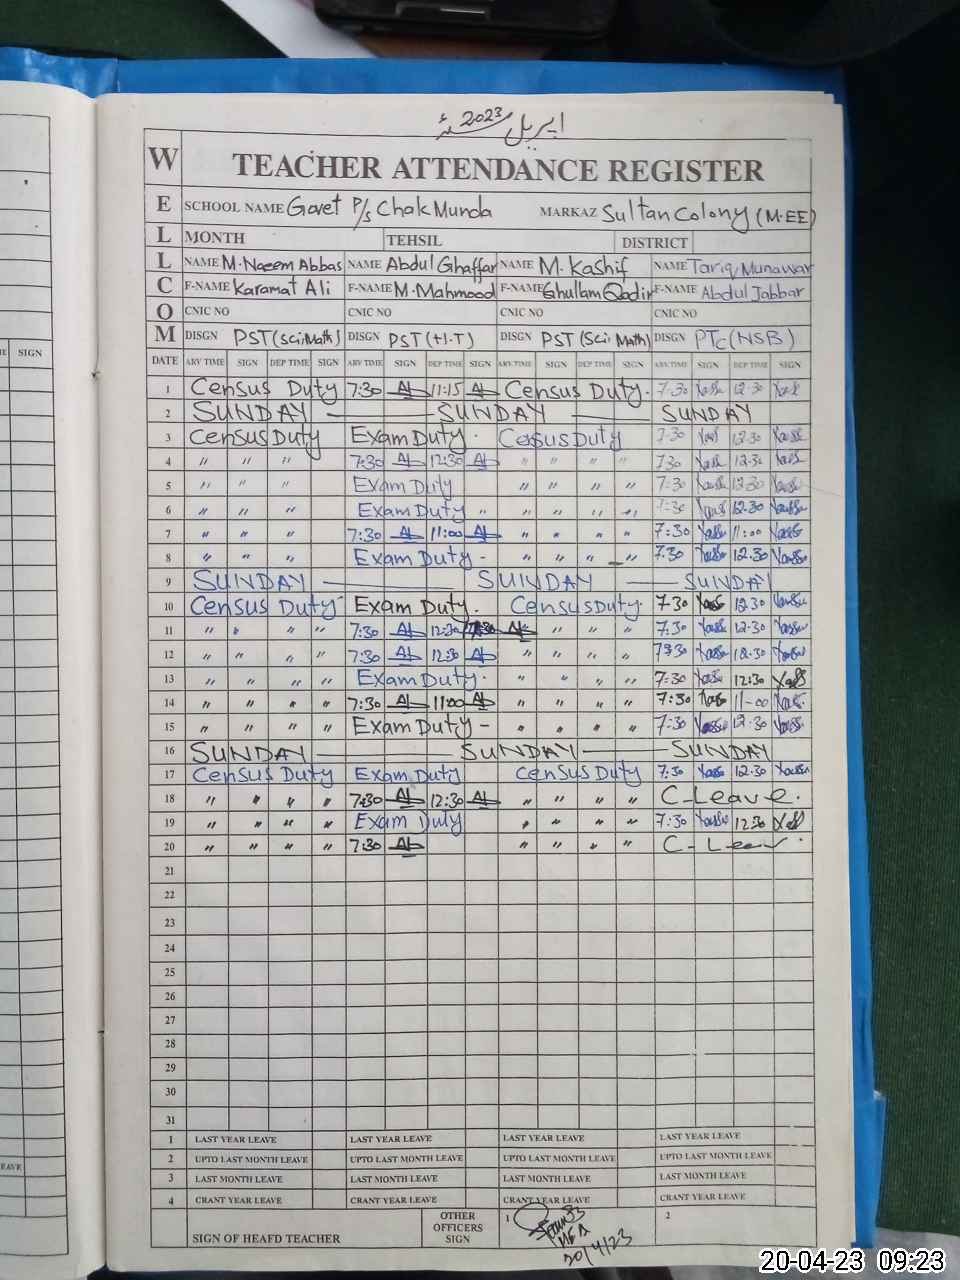 اپریل 2023ء
W TEACHER ATTENDANCE REGISTER
E SCHOOL NAME Govet P/s Chak Munda MARKAZ Sultan Colony (M.EE)
L MONTH TEHSIL DISTRICT
L NAME M.Naeem Abbas NAME Abdul Ghaffar NAME M.Kashif NAME Tariq Munawar
C F-NAME Karamat Ali F-NAME M.Mahmood F-NAME Ghullam Qadir F-NAME Abdul Jabbar
O CNIC NO CNIC NO CNIC NO CNIC NO
M DISGN PST (sci.Math) DISGN PST (H.T) DISGN PST (Sci. Math) DISGN PTC (NSB)
IE SIGN
DATE ARV TIME SIGN DEP TIME SIGN ARV TIME SIGN DEP TIME SIGN ARV TIME SIGN DEP TIME SIGN ARV TIME SIGN DEP TIME SIGN
1 Census Duty 7:30 11:15 Census Duty. 7.30 12.30
2 SUNDAY SUNDAY SUNDAY
3 Census Duty Exam Duty. Census Duty 7.30 12.30
4 〃 〃 〃 7:30 12:30 〃 〃 〃 〃 7.30 12.30
5 〃 〃 〃 Exam Duty 〃 〃 〃 〃 7:30 12:30
6 〃 〃 〃 Exam Duty 〃 〃 〃 〃 〃 7:30 12.30
7 〃 〃 〃 7:30 11:00 〃 〃 〃 〃 7:30 11:00
8 〃 〃 〃 Exam Duty - 〃 〃 〃 〃 7.30 12.30
9 SUNDAY SUNDAY SUNDAY
10 Census Duty Exam Duty. Census Duty. 7.30 12.30
11 〃 〃 〃 〃 7:30 12:30 〃 〃 〃 7.30 12.30
12 〃 〃 〃 〃 7:30 12:30 〃 〃 〃 〃 7:30 12.30
13 〃 〃 〃 〃 Exam Duty. 〃 〃 〃 〃 7:30 12:30
14 〃 〃 〃 〃 7:30 11:00 〃 〃 〃 〃 7:30 11-00
15 〃 〃 〃 〃 Exam Duty - 〃 〃 〃 〃 7:30 12.30
16 SUNDAY SUNDAY SUNDAY
17 Census Duty Exam Duty Census Duty 7:30 12.30
18 〃 〃 〃 〃 7:30 12:30 〃 〃 〃 〃 C-Leave.
19 〃 〃 〃 〃 Exam Duty 〃 〃 〃 〃 7:30 12.30
20 〃 〃 〃 〃 7:30 〃 〃 〃 〃 C-Leav.
21
22
23
24
25
26
27
28
29
30
31
1 LAST YEAR LEAVE LAST YEAR LEAVE LAST YEAR LEAVE LAST YEAR LEAVE
2 UPTO LAST MONTH LEAVE UPTO LAST MONTH LEAVE UPTO LAST MONTH LEAVE UPTO LAST MONTH LEAVE
EAVE
3 LAST MONTH LEAVE LAST MONTH LEAVE LAST MONTH LEAVE LAST MONTH LEAVE
4 CRANT YEAR LEAVE CRANT YEAR LEAVE CRANT YEAR LEAVE CRANT YEAR LEAVE
SIGN OF HEAFD TEACHER OTHER OFFICERS SIGN 1 MEA 20/4/23 2
20-04-23 09:23